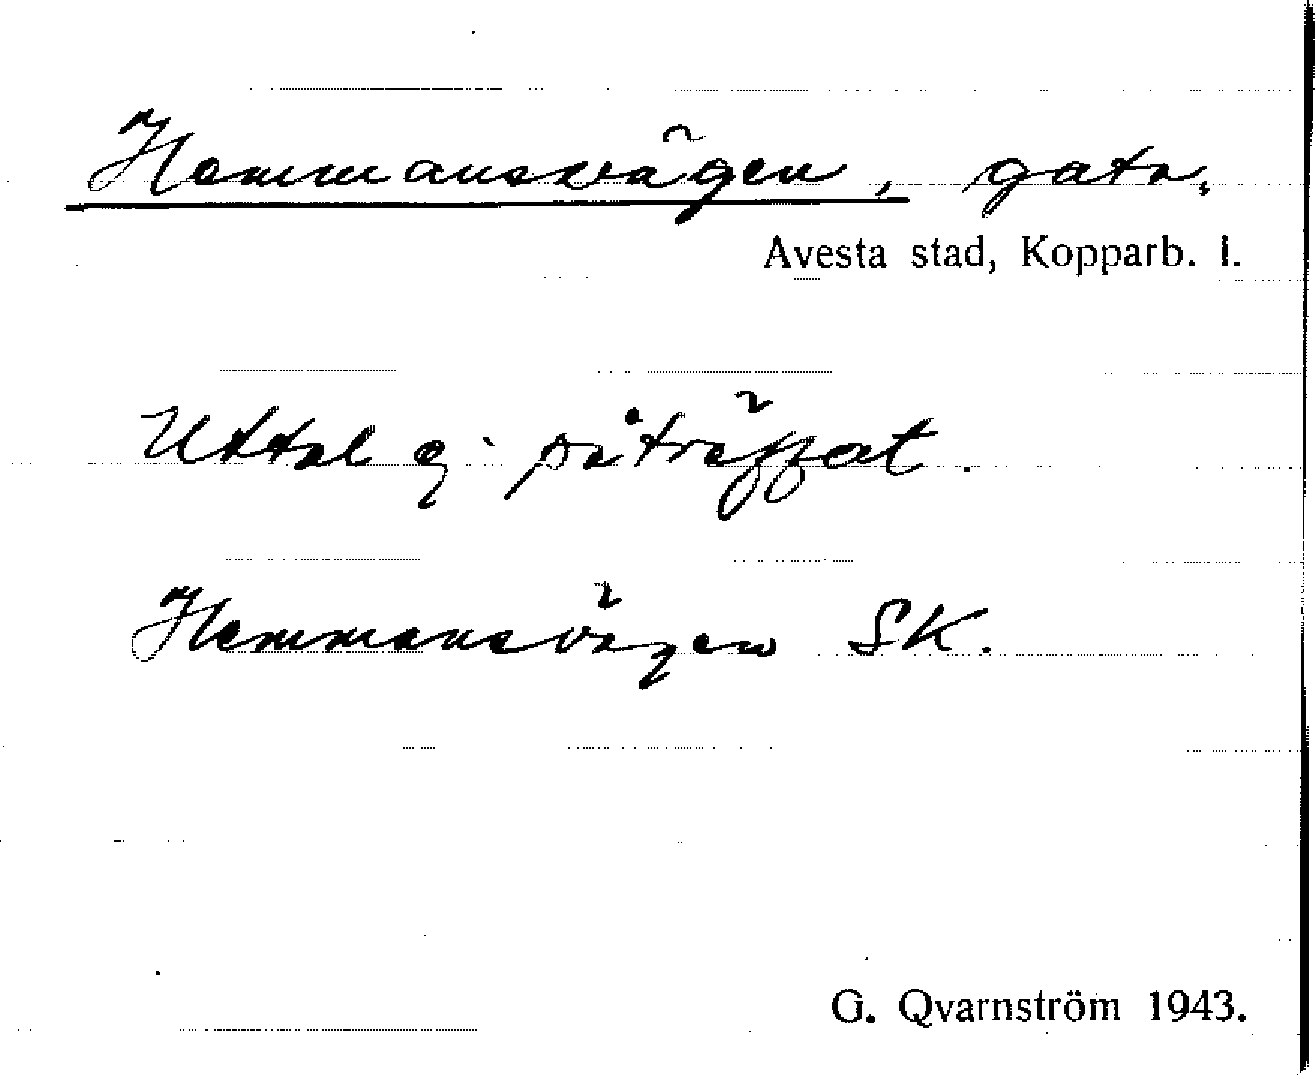 Hemmansvägen, gata.
Avesta stad, Kopparb. l.
Uttal ej påträffat.
Hemmansvägen SK.
G. Qvarnström 1943.